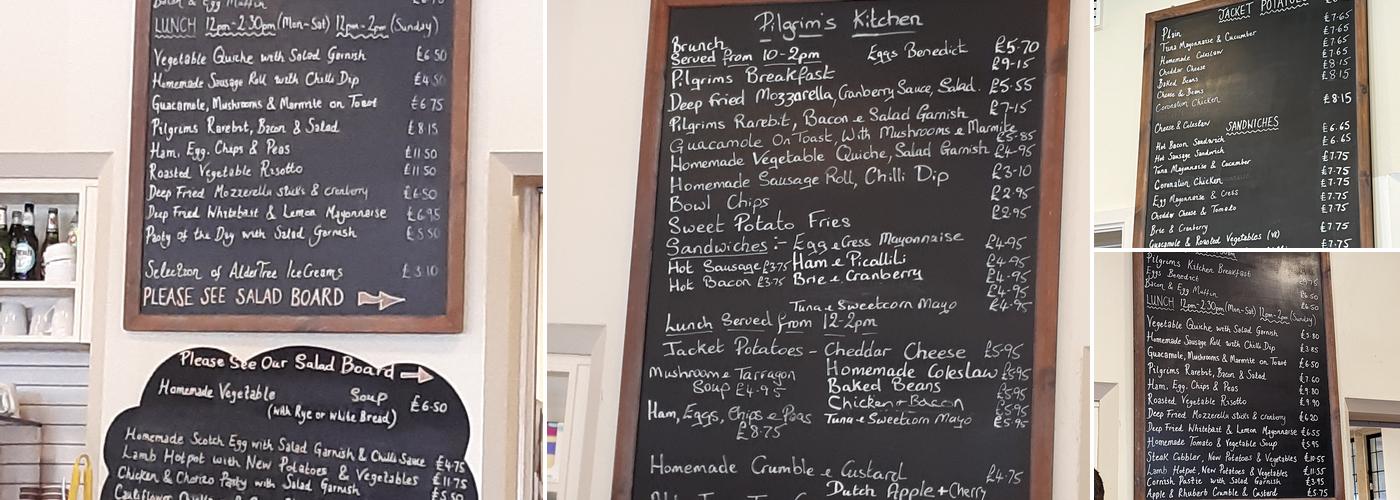 Bacon & Egg Muffin
LUNCH 12pm-2.30pm (Mon-Sat) 12pm-2pm (Sunday)
Vegetable Quiche with Salad Garnish £6.50
Homemade Sausage Roll with Chilli Dip £4.50
Guacamole, Mushrooms & Marmite on Toast £6.75
Pilgrims Rarebit, Bacon & Salad £8.15
Ham, Egg, Chips & Peas £11.50
Roasted Vegetable Risotto £11.50
Deep Fried Mozzerella sticks & cranberry £6.50
Deep Fried Whitebait & Lemon Mayonnaise £6.95
Pasty of the Day with Salad Garnish £5.50
Selection of AlderTree IceCreams £3.10
PLEASE SEE SALAD BOARD
Please See Our Salad Board
Homemade Vegetable Soup £6.50
(with Rye or white Bread)
Homemade Scotch Egg with Salad Garnish & Chilli Sauce £4.75
Lamb Hotpot with New Potatoes & Vegetables £11.75
Chicken & Chorizo Pasty with Salad Garnish £5.50
Cauliflower
Pilgrim's Kitchen
Brunch
Served from 10-2pm Eggs Benedict £5.70
Pilgrims Breakfast £9.15
Deep fried Mozzarella, Cranberry Sauce, Salad. £5.55
Pilgrims Rarebit, Bacon & Salad Garnish £7.15
Guacamole On Toast, With Mushrooms & Marmite £5.85
Homemade Vegetable Quiche, Salad Garnish £4.95
Homemade Sausage Roll, Chilli Dip £3.10
Bowl Chips £2.95
Sweet Potato Fries £2.95
Sandwiches :- Egg & Cress Mayonnaise £4.95
Hot Sausage £3.75 Ham & Picallili £4.95
Hot Bacon £3.75 Brie & Cranberry £4.95
£4.95
Tuna & Sweetcorn Mayo £4.95
Lunch Served from 12-2pm
Jacket Potatoes - Cheddar Cheese £5.95
Mushroom & Tarragon Homemade Coleslaw £5.95
Soup £4.95 Baked Beans £5.95
Chicken + Bacon £5.95
Ham, Eggs, Chips & Peas Tuna & Sweetcorn Mayo £5.95
£8.75
Homemade Crumble & Custard £4.75
Dutch Apple + Cherry
JACKET POTATOES
Plain £7.65
Tuna Mayonnaise & Cucumber £7.65
Homemade Coleslaw £7.65
Cheddar Cheese £7.65
Baked Beans £8.15
Cheese & Beans £8.15
Coronation Chicken
Cheese & Coleslaw £8.15
SANDWICHES
Hot Bacon Sandwich £6.65
Hot Sausage Sandwich £6.65
Tuna Mayonnaise & Cucumber £7.75
Coronation Chicken £7.75
Egg Mayonnaise & Cress £7.75
Cheddar Cheese & Tomato £7.75
Brie & Cranberry £7.75
Guacamole & Roasted Vegetables (VE) £7.75
Pilgrims Kitchen Breakfast
Eggs Benedict
Bacon & Egg Muffin £6.50
LUNCH 12pm-2.30pm (Mon-Sat) 12pm-2pm (Sunday)
Vegetable Quiche with Salad Garnish £5.80
Homemade Sausage Roll with Chilli Dip £3.85
Guacamole, Mushrooms & Marmite on Toast £6.50
Pilgrims Rarebit, Bacon & Salad £7.60
Ham, Egg, Chips & Peas £9.80
Roasted Vegetable Risotto £9.90
Deep Fried Mozzerella sticks & cranberry £6.20
Deep Fried Whitebait & Lemon Mayonnaise £6.55
Homemade Tomato & Vegetable Soup £5.95
Steak Cobbler, New Potatoes & Vegetables £10.55
Lamb Hotpot, New Potatoes & Vegetables £11.55
Cornish Pastie with Salad Garnish £3.95
Apple & Rhubarb Crumble & Custard £5.75